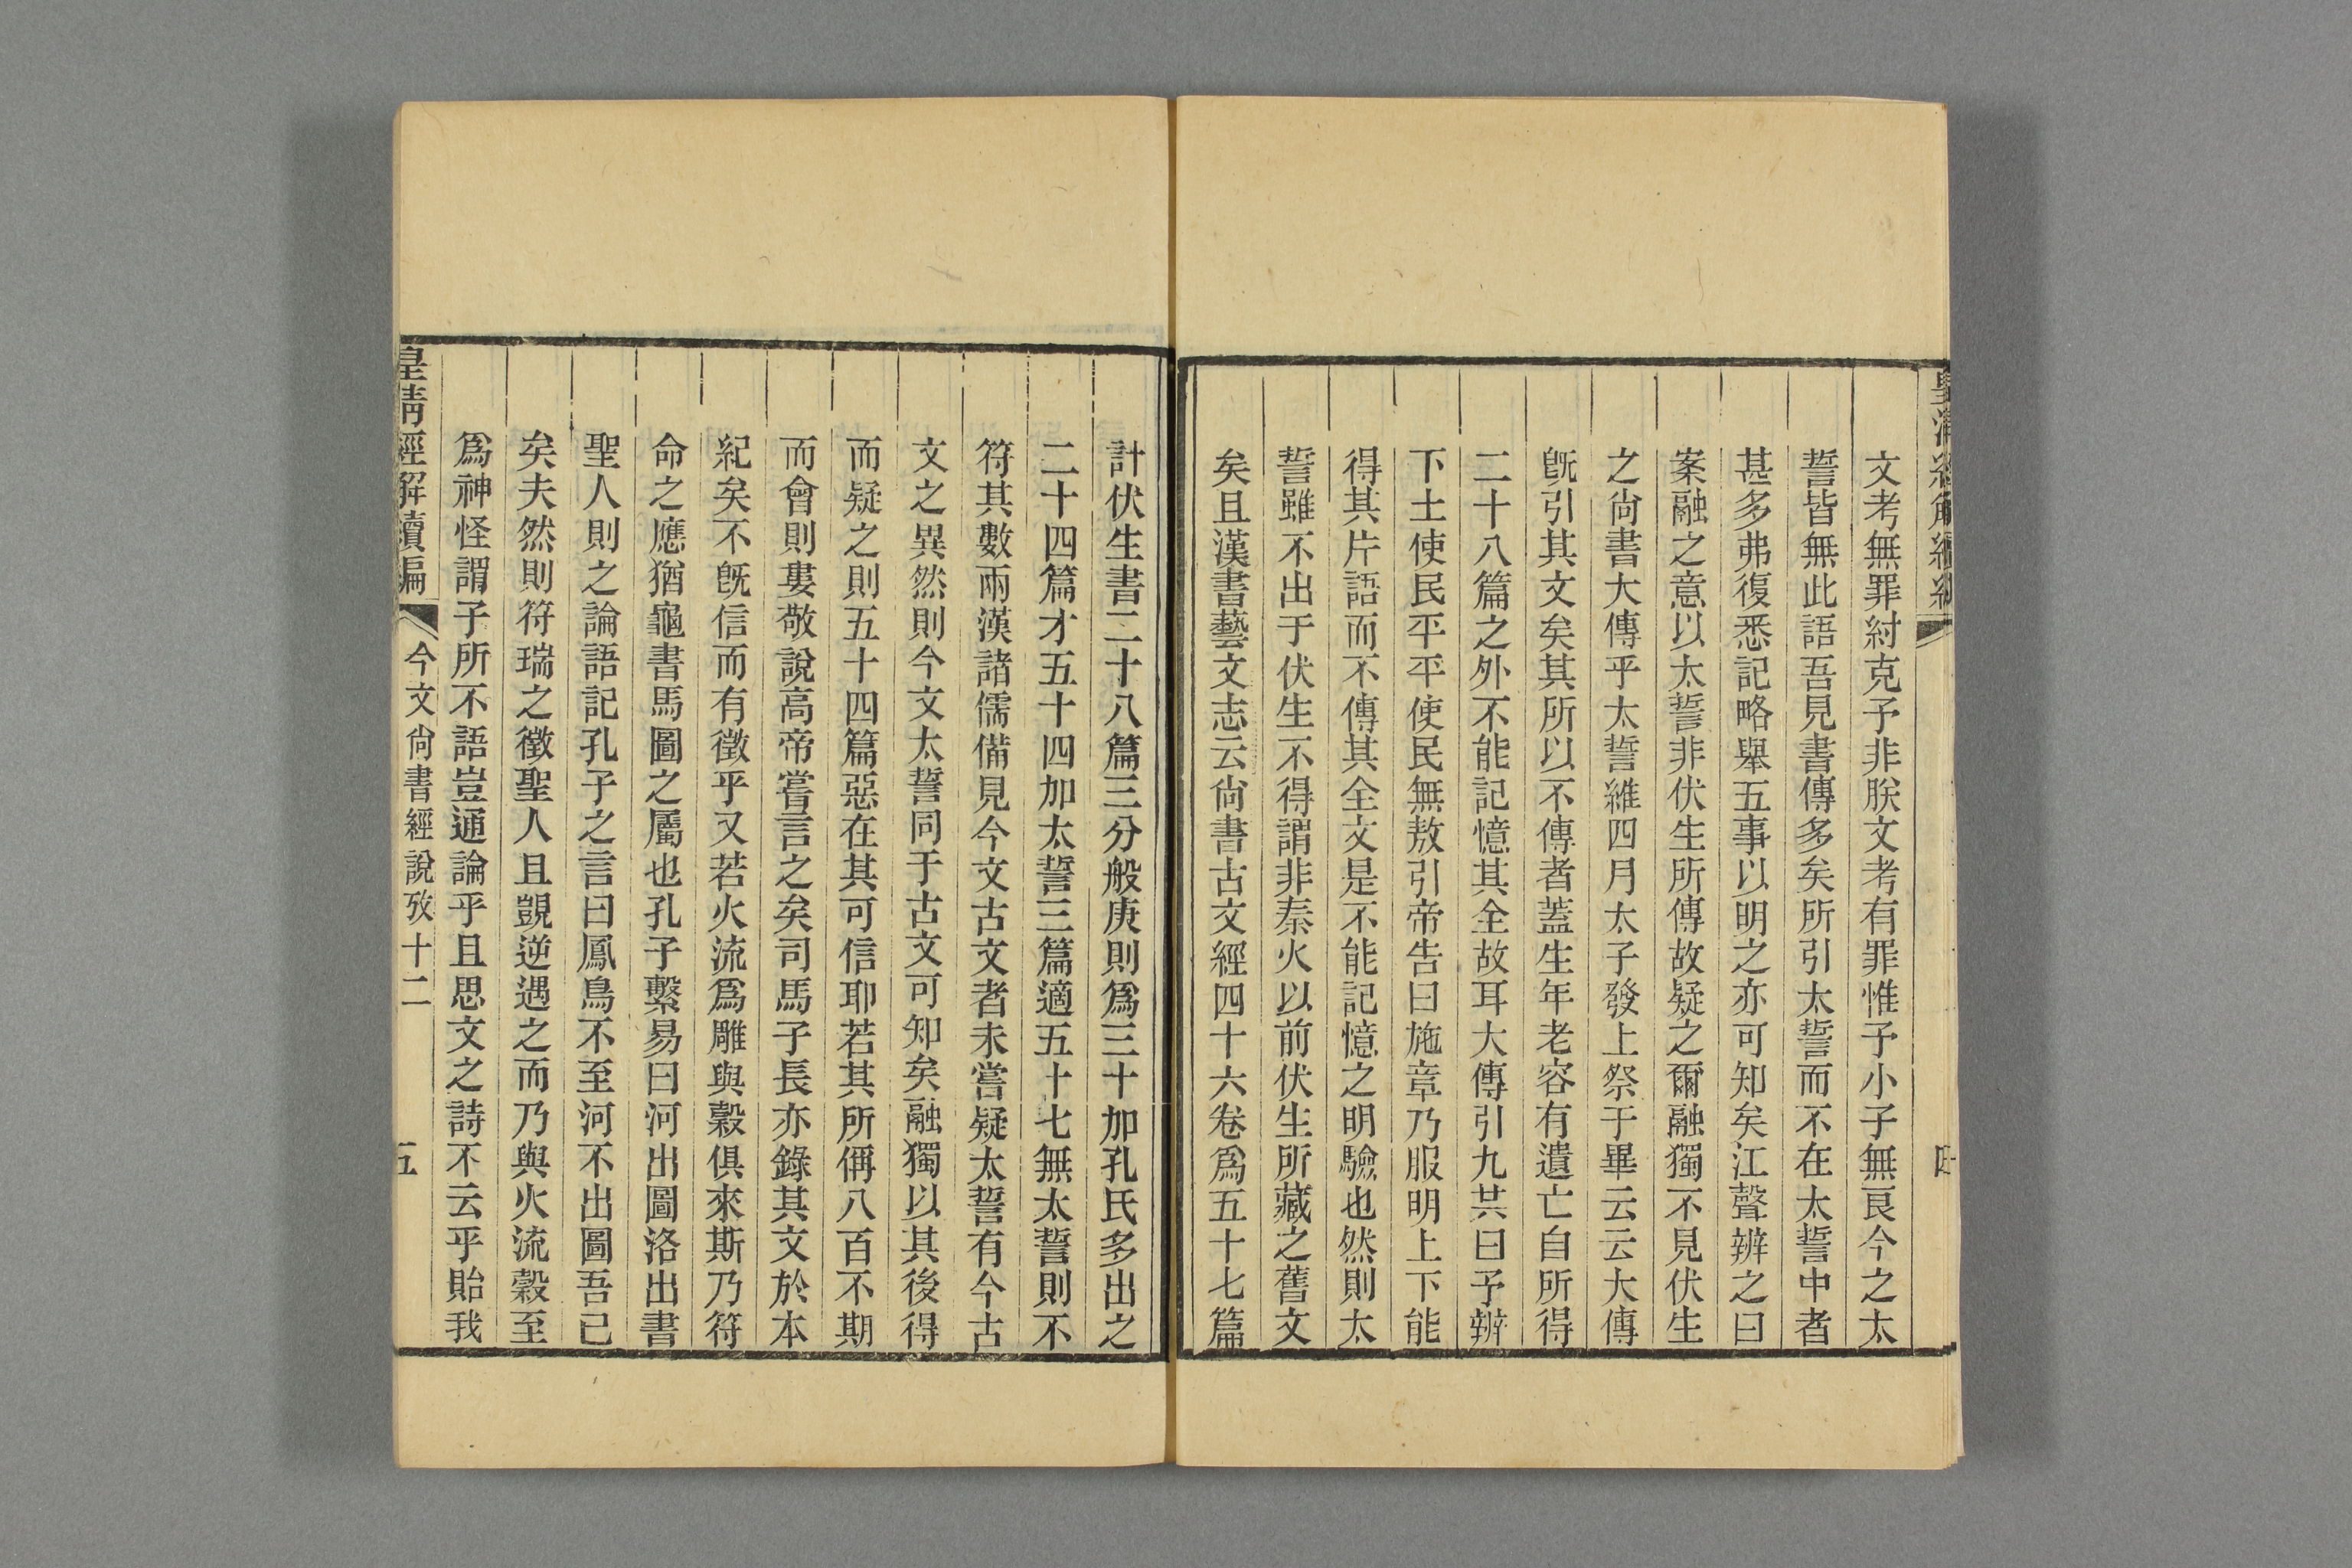 文考無罪紂克予非朕文考有罪惟予小子無良今之太
誓皆無此語吾見書傳多矣所引太誓而不在太誓中者
甚多弗復悉記略舉五事以明之亦可知矣江聲辨之曰
案融之意以太誓非伏生所傳故疑之爾融獨不見伏生
之尙書大傳乎太誓維四月太子發上祭于畢云云大傳
旣引其文矣其所以不傳者蓋生年老容有遺亡自所得
二十八篇之外不能記憶其全故耳大傳引九共曰予辨
下土使民平平使民無敖引帝告曰施章乃服明上下能
得其片語而不傳其全文是不能記憶之明驗也然則太
誓雖不出于伏生不得謂非秦火以前伏生所藏之舊文
矣且漢書藝文志云尙書古文經四十六卷爲五十七篇
計伏生書二十八篇三分般庚則爲三十加孔氏多出之
二十四篇才五十四加太誓三篇適五十七無太誓則不
符其數兩漢諸儒備見今文古文者未嘗疑太誓有今古
文之異然則今文太誓同于古文可知矣融獨以其後得
而疑之則五十四篇惡在其可信耶若其所偁八百不期
而會則婁敬說高帝嘗言之矣司馬子長亦錄其文於本
紀矣不旣信而有徵乎又若火流爲雕與穀俱來斯乃符
命之應猶龜書馬圖之屬也孔子繫易曰河出圖洛出書
聖人則之論語記孔子之言曰鳳鳥不至河不出圖吾已
矣夫然則符瑞之徵聖人且覬逆遇之而乃與火流穀至
爲神怪謂子所不語豈通論乎且思文之詩不云乎貽我
皇清經解續編
今文尙書經說攷十二
五